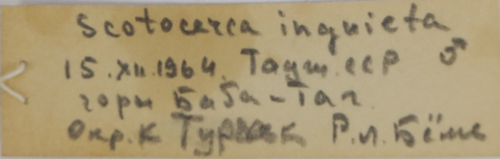 Scotocerca inquieta
15.XII.1964. Тадж.ССР ♂
горы Баба-Таг
Окр.к Р.Л.Бёме